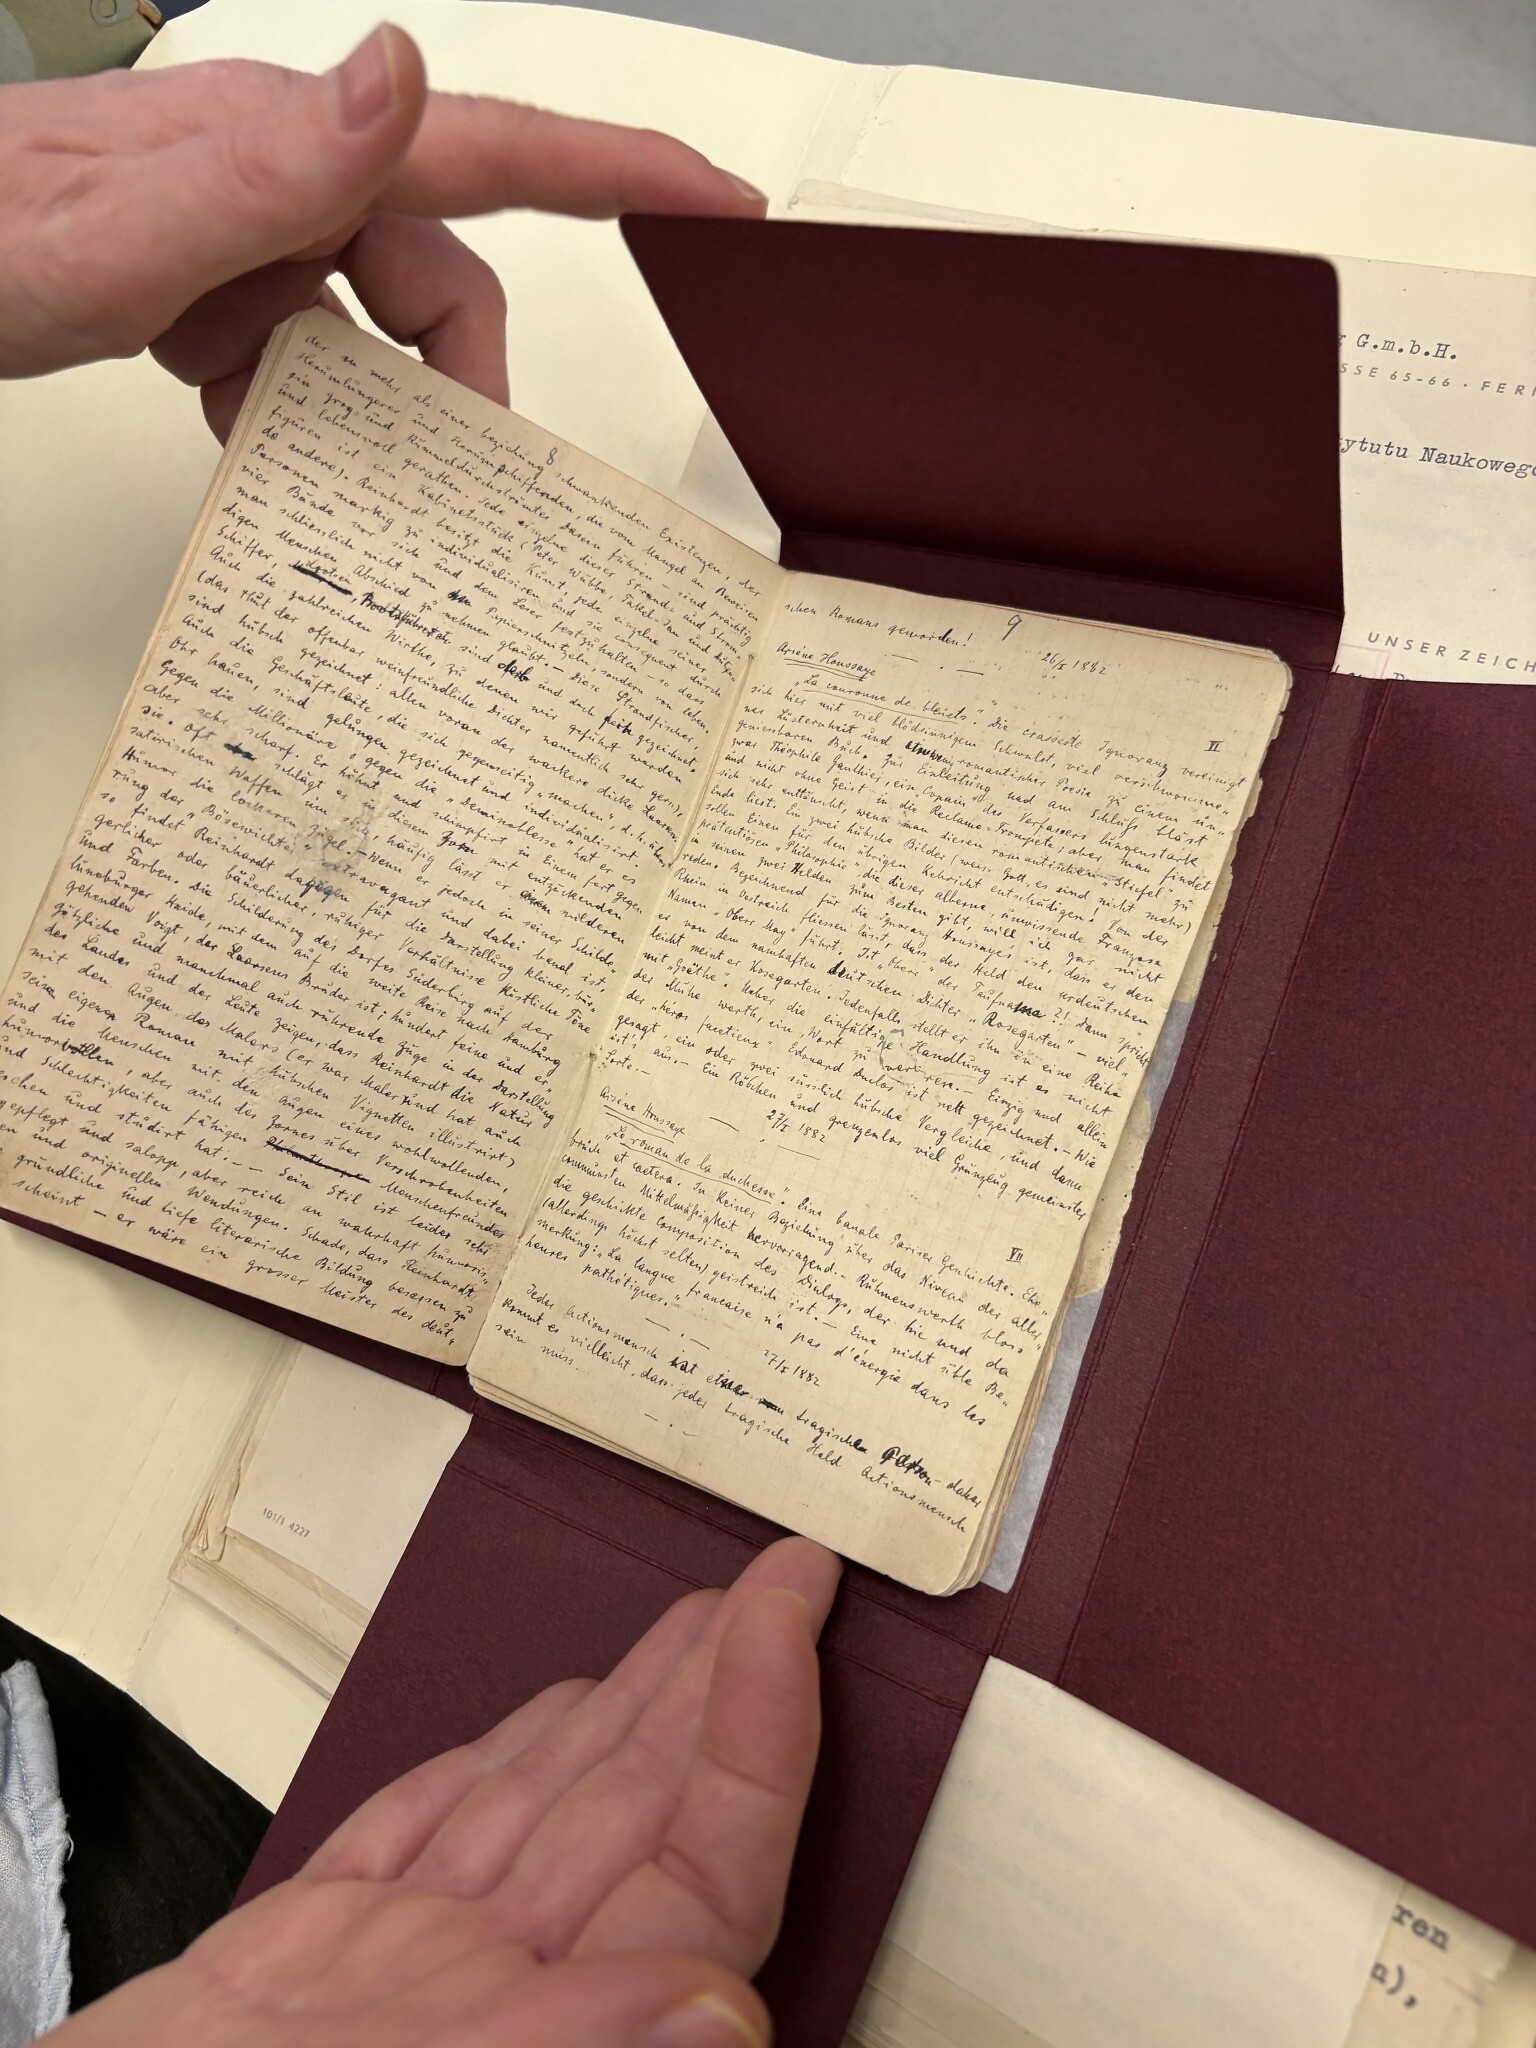 8
der in mehr als einer beziehung schwankenden Existenzen, der
Herumlungerer und Herumschiffenden, die vom Mangel an Beweisen
ein grog- und Rummeldurchströmtes Dasein führen – sind prächtig
und lebensvoll gerathen. Jede einzelne dieser Strand- und Strom-
figuren ist ein Kabinetsstück (Peter Wübbe, Takel-Jan und
da andere). Reinhardt besitzt die Kunst, jede einzelne seiner
Personen markig zu individualisiren und sie consequent durch
vier Bände vor sich und dem Leser festzuhalten – so dass
man schliesslich nicht von Papierschnitzeln, sondern von leben-
digen Menschen Abschied zu nehmen glaubt. – Diese Strandfischer,
Schiffer, Bootsführer sind derb und doch fein gezeichnet.
Auch die zahlreichen Wirthe, zu denen wir geführt werden
(das thut der offenbar weinfreundliche Dichter namentlich sehr gern),
sind hübsch gezeichnet: allen voran der wackere dicke Laarsen.
Auch die Geschäftsleute, die sich gegenseitig "machen", d. h. übers
Ohr hauen, sind gelungen gezeichnet und individualisirt.
Gegen die Millionäre, gegen die "Deminoblesse" hat er es
aber sehr scharf. Er höhnt und schimpft in Einem fort gegen
sie. Oft schlägt er in diesem Zorn mit entzückenden
satirischen Waffen um sich, häufig lässt er einen milderen
Humor die lockeren Zügel. – Wenn er jedoch in seiner Schilde-
rung der "Bösewichter" extravagant und dabei banal ist,
so findet Reinhardt dagegen für die Darstellung kleiner, bür-
gerlicher oder bäuerlicher, ruhiger Verhältnisse köstliche Töne
und Farben. Die Schilderung des Dorfes Süderburg auf der
Lüneburger Haide, mit dem auf die weite Reise nach Hamburg
gehenden Voigt, der Laarsens Bruder ist; hundert feine und er-
götzliche und manchmal auch rührende Züge in der Darstellung
des Landes und der Leute zeigen, dass Reinhardt die Natur
mit den Augen des Malers (er war Maler und hat auch
seinen eigenen Roman mit hübschen Vignetten illustrirt)
und die Menschen mit den Augen eines wohlwollenden,
humorvollen, aber auch des Zornes über Verschrobenheiten
und Schlechtigkeiten fähigen Menschenfreundes
geschen und studirt hat. – – Sein Stil ist leider sehr
gepflegt und salopp, aber reich an wahrhaft humoris-
en und originellen Wendungen. Schade, dass Reinhardt
gründliche und tiefe literarische Bildung besessen zu
scheint – er wäre ein grosser Meister des deut-
9
schen Romans geworden!
26/X 1882
Arsène Houssaye
VI
"La couronne de bleuets." Die crasseste Ignoranz vereinigt
sich hier mit viel blödsinnigem Schwulst, viel verschwomme-
ner Lüsternheit und romantischer Poesie zu einem un-
geniessbaren Buch. Zur Einleitung und am Schluss bläst
zwar Théophile Gauthier, ein "Copain" des Verfassers lungenstark
und nicht ohne Geist in die Reclame-Trompete, aber man findet
sich sehr enttäuscht, wenn man diesen romantischen "Stiefel" zu
Ende liest. Ein zwei hübsche Bilder (weiss Gott, es sind nicht mehr)
sollen Einen für den übrigen Kehricht entschädigen! Von der
prätentiösen "Philosophie", die dieser alberne, unwissende Franzose
in seinen zwei Helden zum Besten gibt, will ich gar nicht
reden. Bezeichnend für die Ignoranz Houssaye's ist, dass er den
Rhein in Oestreich fliessen lässt, dass der Held den urdeutschen
Namen "Oberr May" führt. Ist "Oberr" der Taufname?! Dann spricht
er von dem namhaften deutschen Dichter "Rosegarten" – viel-
leicht meint er Kosegarten. Jedenfalls stellt er ihn in eine Reihe
mit "Goëthe". Ueber die einfältige Handlung ist es nicht
der Mühe werth, ein Wort zu verlieren. – Einzig und allein
der "héros facetieux" Edouard Duclos ist nett gezeichnet. – Wie
gesagt, ein oder zwei süsslich hübsche Vergleiche, und dann
ist's aus. – Ein Röschen und grenzenlos viel Grünzeug gemeinster
Sorte. –
27/X 1882
Arsène Houssaye
VII
"Le roman de la duchesse." Eine banale Pariser Geschichte. Ehe-
bruch et caetera. In keiner Beziehung über das Niveau der aller-
communsten Mittelmässigkeit hervorragend. – Rühmenswerth bloss
die geschickte Composition des Dialogs, der hie und da
(allerdings höchst selten) geistreich ist. – Eine nicht üble Be-
merkung: "La langue française n'a pas d'énergie dans les
heures pathétiques."
27/X 1882
Jeder Actionsmensch hat einen tragischen – daher
kommt es vielleicht, dass jeder tragische Held Actionsmensch
sein muss.
G.m.b.H.
SSE 65-66 · FER
tytutu Naukowego
UNSER ZEICH
101/1 4227
ren
n),